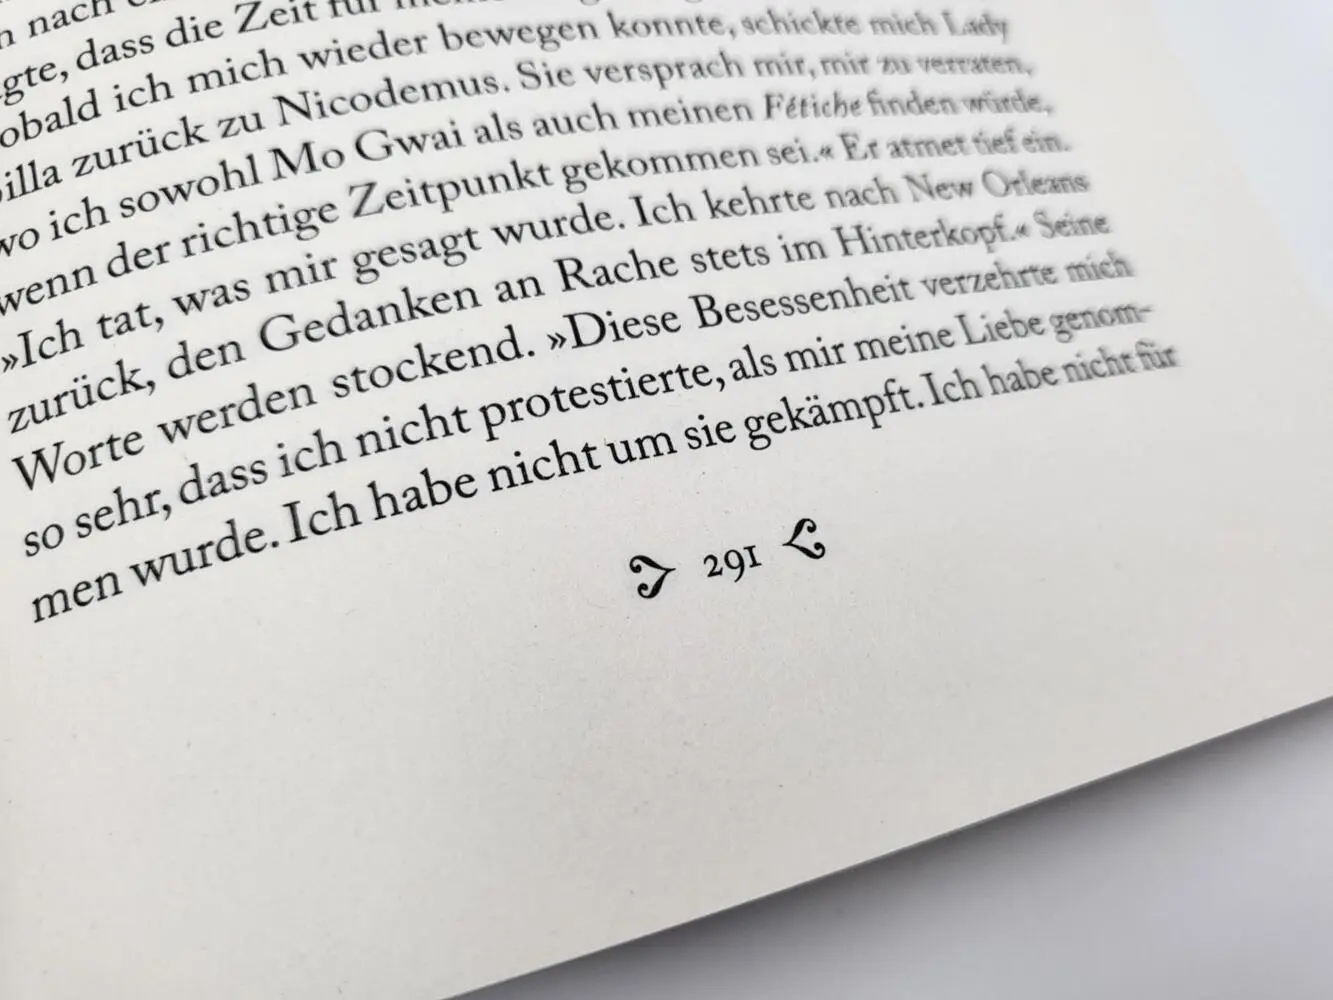 nach
dass die Zeit für
ich mich wieder bewegen konnte, schickte mich Lady
zurück zu Nicodemus. Sie versprach mir, mir zu verraten,
wo ich sowohl Mo Gwai als auch meinen Fétiche finden würde,
wenn der richtige Zeitpunkt gekommen sei.« Er atmet tief ein.
»Ich tat, was mir gesagt wurde. Ich kehrte nach New Orleans
zurück, den Gedanken an Rache stets im Hinterkopf.« Seine
Worte werden stockend. »Diese Besessenheit verzehrte mich
so sehr, dass ich nicht protestierte, als mir meine Liebe genom-
men wurde. Ich habe nicht um sie gekämpft. Ich habe nicht für
291